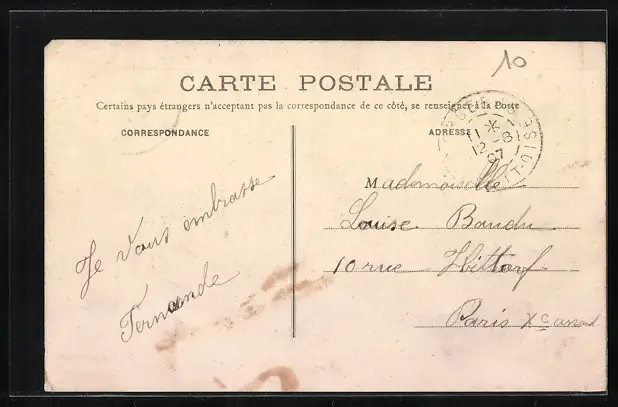 10
CARTE POSTALE
Certains pays étrangers n'acceptant pas la correspondance de ce côté, se renseigner à la Poste
CORRESPONDANCE
ADRESSE
Je vous embrasse
Fernande
Mademoiselle
Louise Baudu
10 rue Hittorf
Paris Xe arrond